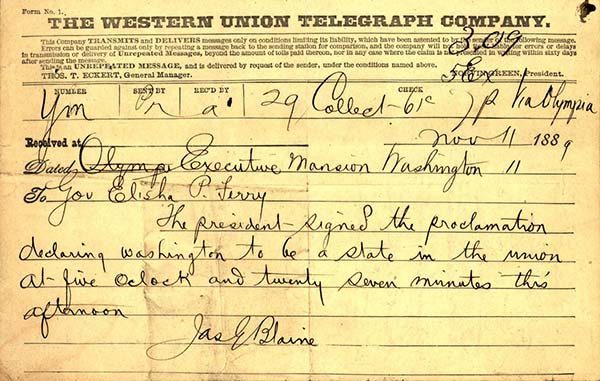 Form No. 1.
THE WESTERN UNION TELEGRAPH COMPANY.
This Company TRANSMITS and DELIVERS messages only on conditions limiting its liability, which have been assented to by the sender of the following message.
Errors can be guarded against only by repeating a message back to the sending station for comparison, and the company will not hold itself liable for errors or delays
in transmission or delivery of Unrepeated Messages, beyond the amount of tolls paid thereon, nor in any case where the claim is not presented in writing within sixty days
after sending the message.
This is an UNREPEATED MESSAGE, and is delivered by request of the sender, under the conditions named above.
THOS. T. ECKERT, General Manager. NORVIN GREEN, President.
NUMBER SENT BY REC'D BY CHECK
Ym Pr a 29 Collect-61c Via Olympia
Received at Nov 11 1889
Dated Olymp Executive Mansion Washington 11
To Gov Elisha P. Ferry
The president signed the proclamation
declaring washington to be a state in the union
at five oclock and twenty seven minutes this
afternoon
Jas G Blaine